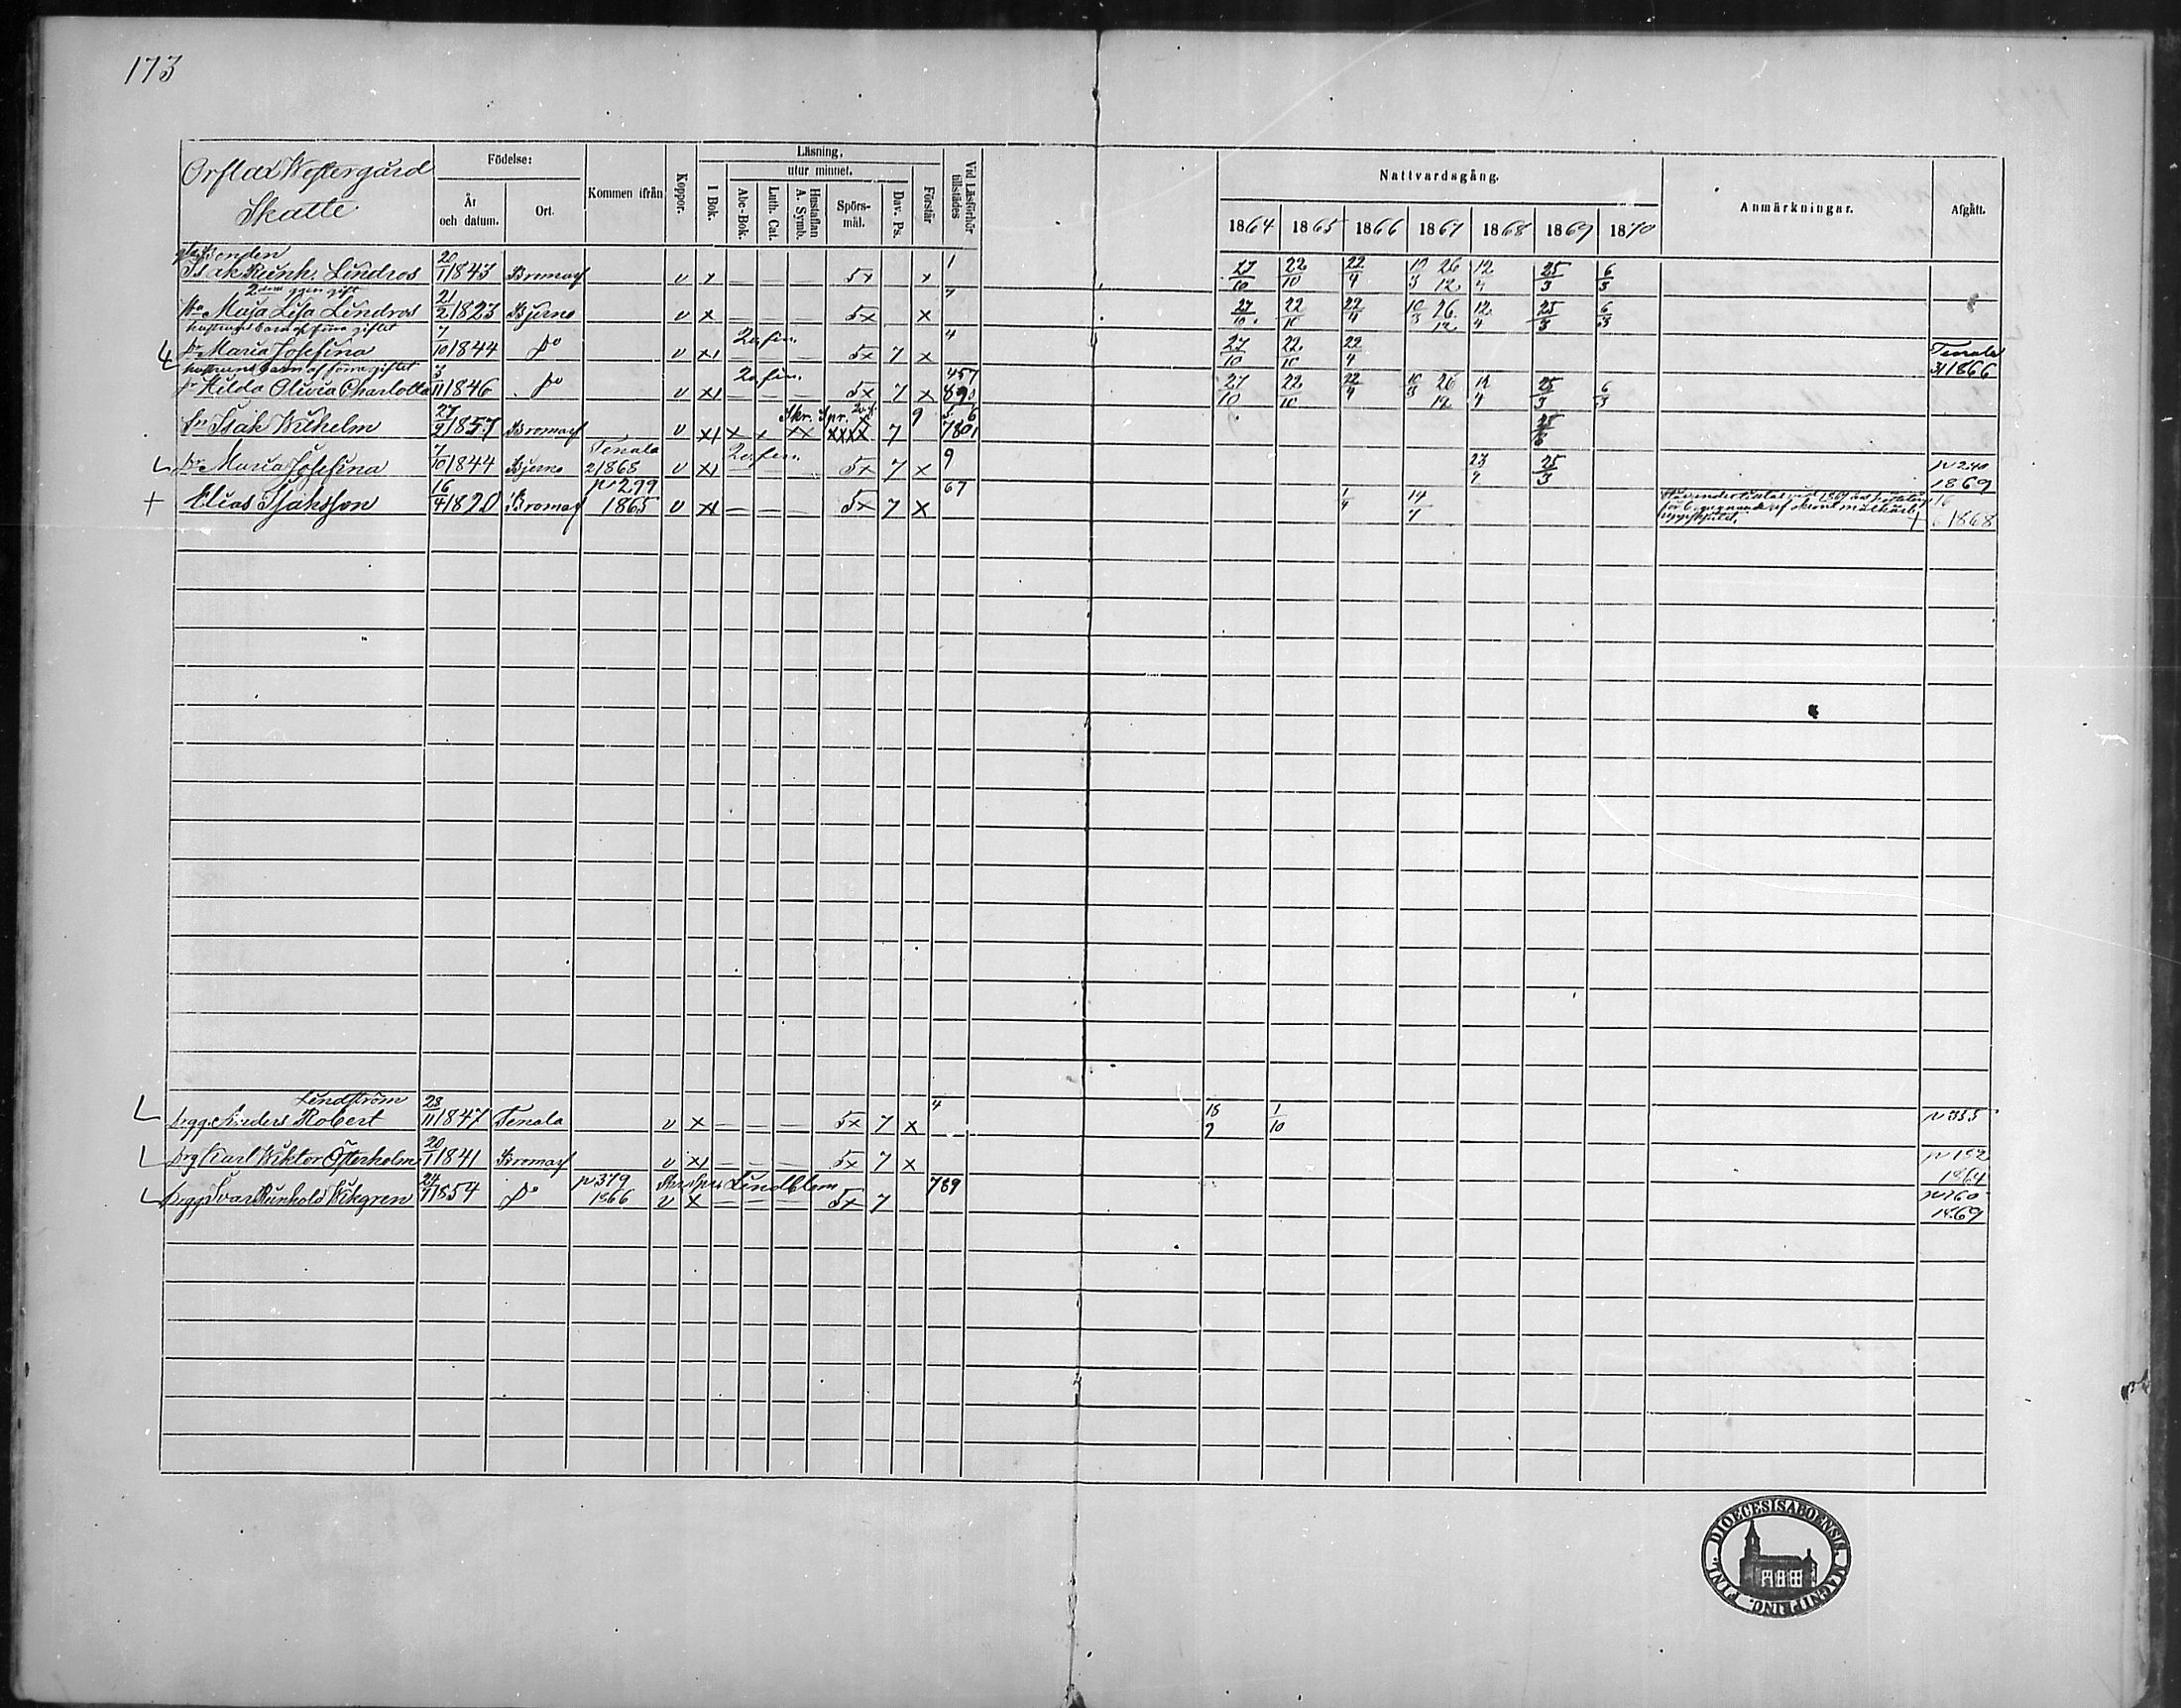 173
Orflax Westergård
Skatte
Födelse:
År
och datum.
Ort.
Kommen ifrån
Koppor.
Läsning,
I Bok.
utur minnet.
Abc-Bok.
Luth. Cat.
Hustaflan
A. Symb.
Spörs-
mål.
Dav. Ps.
Förstår
Vid Läsförhör
tillstädes
Nattvardsgång.
1864 1865 1866 1867 1868 1869 1870
Anmärkningar.
Afgått.
Bonden
Isak Reinh. Lindros 20/1 1843 Bromarf v x — — — 5x x 1 27/10 22/10 22/4 10/3 26/12 12/4 25/3 6/3
2dra ggen gift
Maja Lisa Lindros 21/2 1823 Bjerno v x — — — 5x x 27/10 22/10 22/4 10/3 26/12 12/4 25/3 6/3
hustruns barn af förra giftet
Dr Maria Josefina 7/10 1844 Do v x — — — 5x 7 x 4 27/10 22/10 22/4 Tenala
31 1866
hustruns barn af förra giftet
Dr Hilda Olivia Charlotta 3/11 1846 Do v x — — — 5x 7 x 457 890 27/10 22/10 22/4 10/3 26/12 12/4 25/3 6/3
Sn Isak Wilhelm 27/2 1857 Bromarf v x x x xx xxxx 7 9 5 6 7801 25/6
Dr Maria Josefina 7/10 1844 Bjerno Tenala 2 1868 v x — — — 5x 7 x 9 23/4 25/3 p 240
1869
Elias Isaksson 16/4 1820 Bromarf p 299 1865 v x — — — 5x 7 x 67 1/4 14/4 16
+ 6 1868
Lindström
Anders Robert 28/11 1847 Tenala v x — — — 5x 7 x 4 18/9 1/10 p 355
Drg Karl Wiktor Österholm 20/1 1841 Bromarf v x — — — 5x 7 x p 192
1864
Ivar Reinhold Wikgren 24/7 1854 Do p 379 1866 Lindblom v x — — — 5x 7 789 p 260
1869
DIOECESIS ABOENSIS. MAGNI PRINC. FINL.